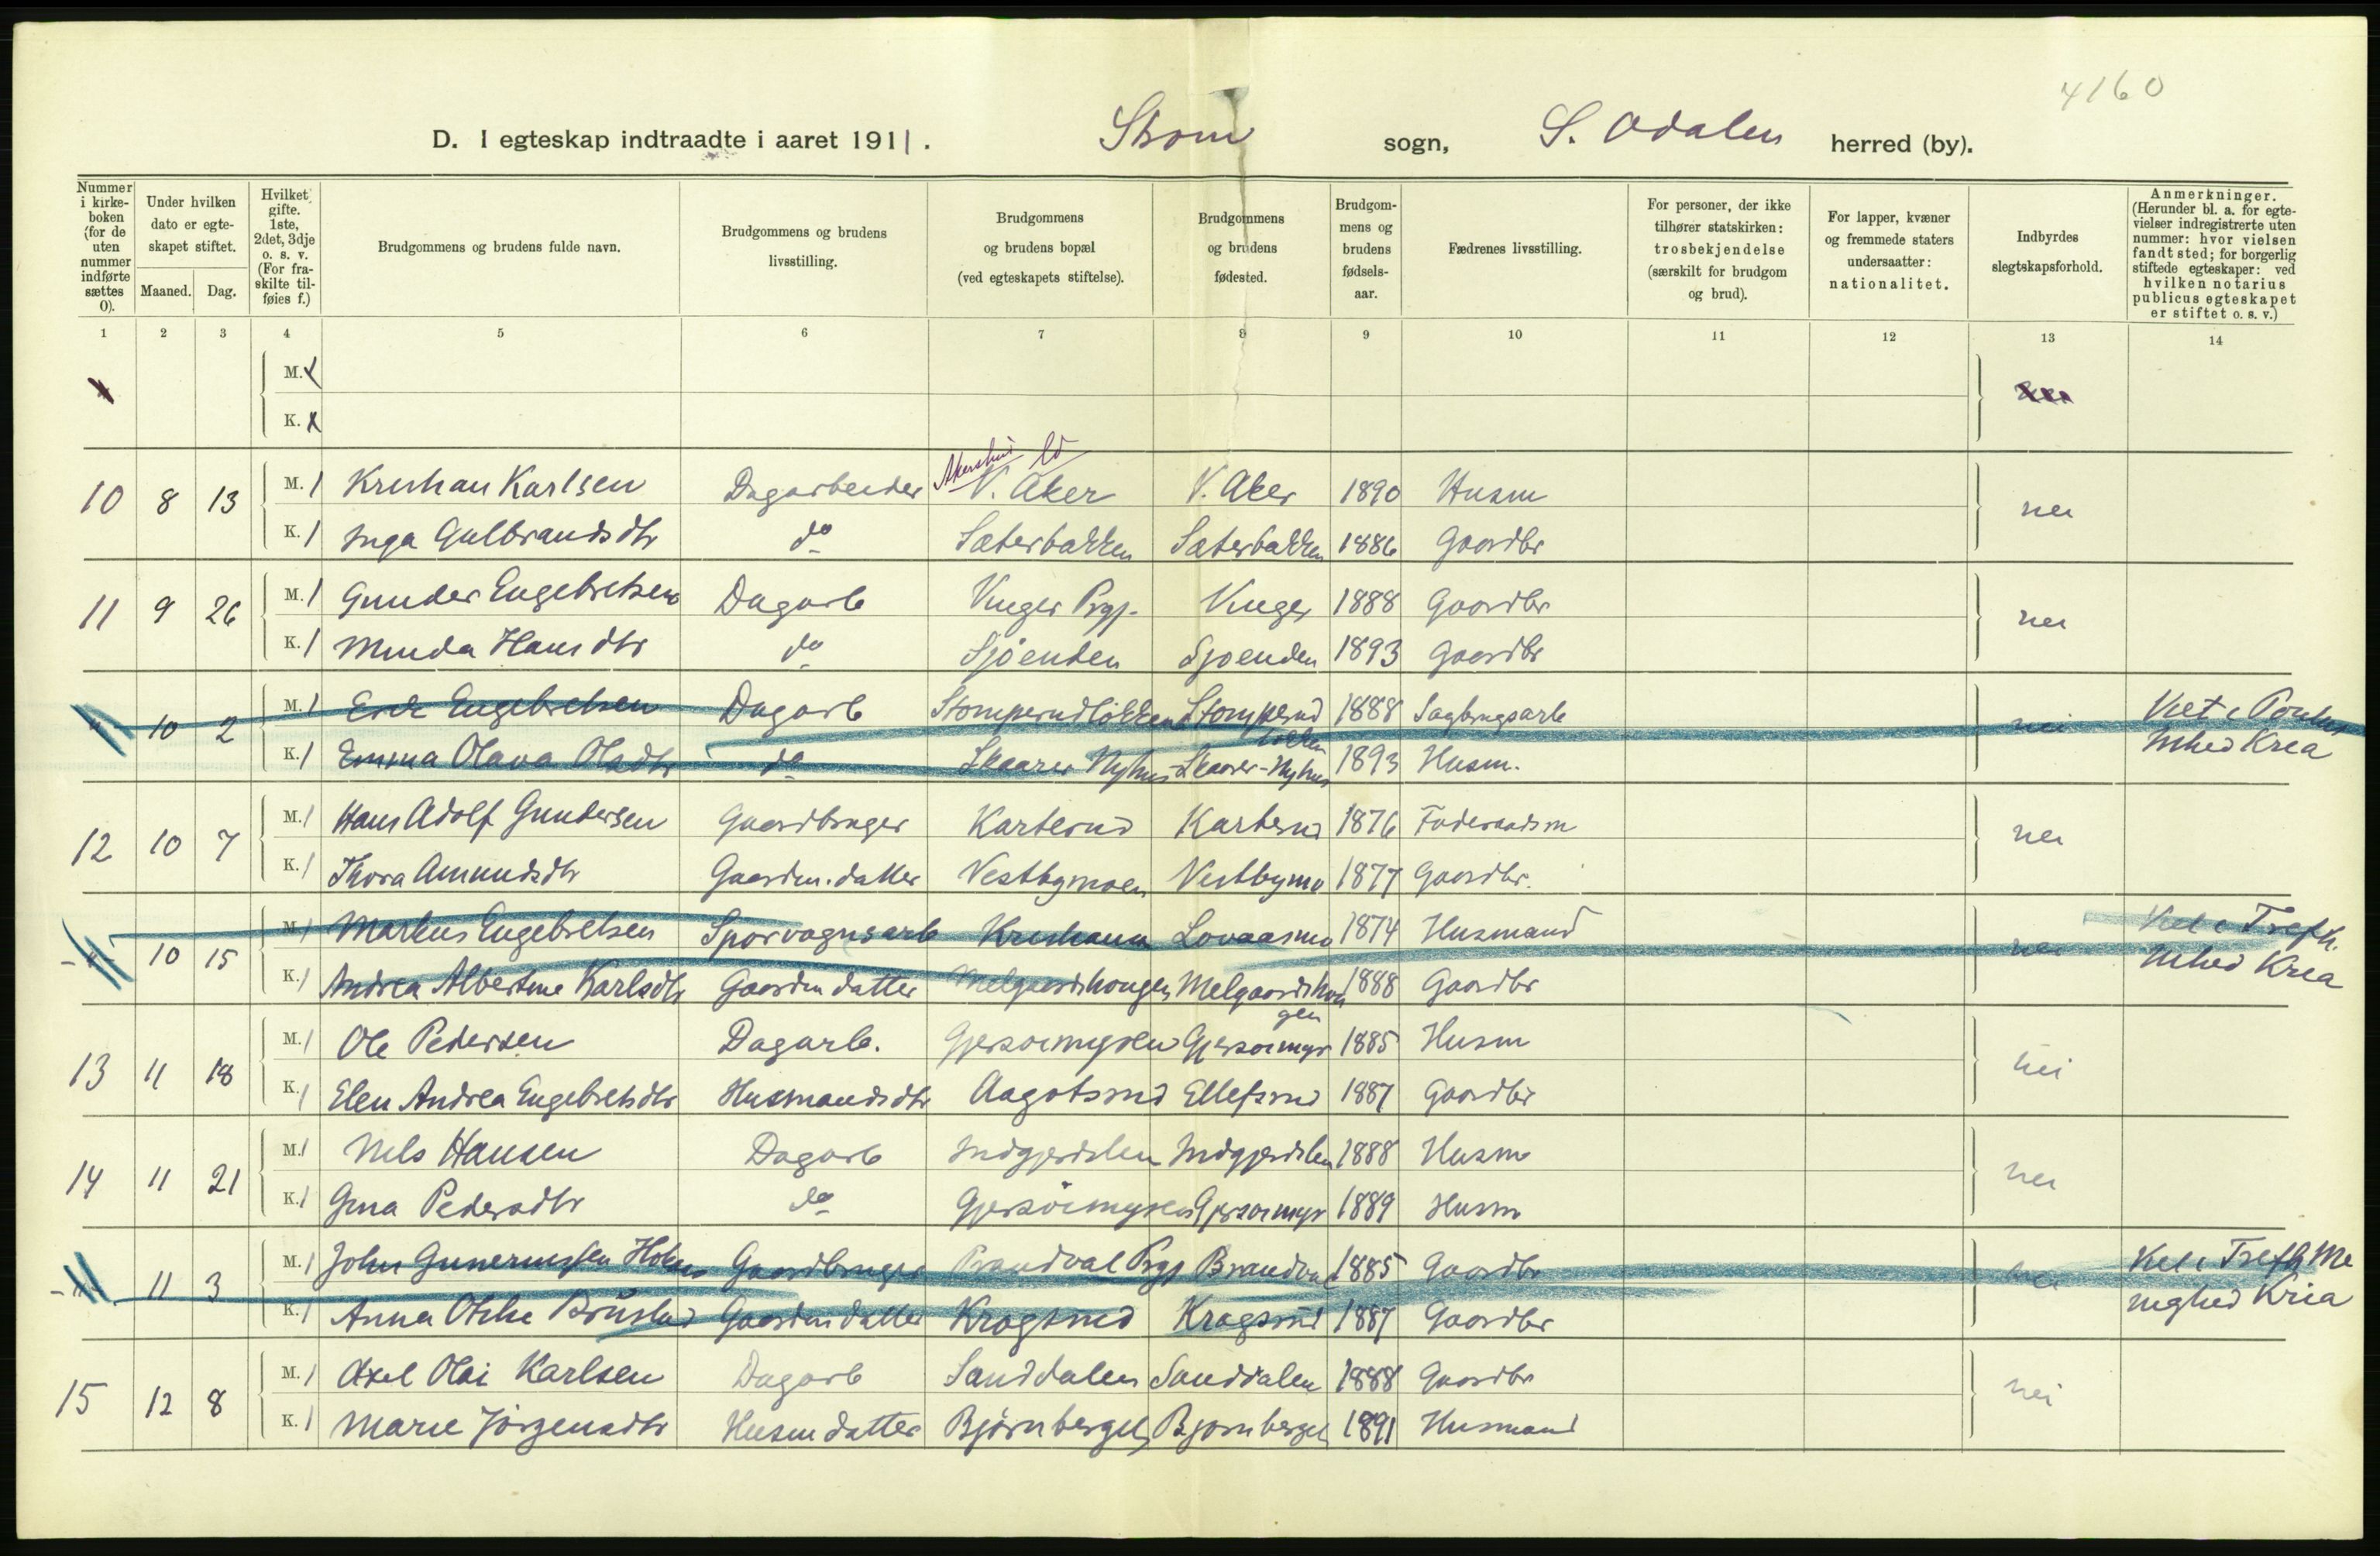 4160
D. I egteskap indtraadte i aaret 1911. Strøm sogn, S. Odalen herred (by).
Nummer i kirkeboken (for de uten nummer indførte sættes 0).
Under hvilken dato er egteskapet stiftet.
Maaned. Dag.
Hvilket gifte. 1ste, 2det, 3dje o. s. v. (For fraskilte tilføies f.)
Brudgommens og brudens fulde navn.
Brudgommens og brudens livsstilling.
Brudgommens og brudens bopæl (ved egteskapets stiftelse).
Brudgommens og brudens fødested.
Brudgommens og brudens fødselsaar.
Fædrenes livsstilling.
For personer, der ikke tilhører statskirken: trosbekjendelse (særskilt for brudgom og brud).
For lapper, kvæner og fremmede staters undersaatter: nationalitet.
Indbyrdes slegtskapsforhold.
Anmerkninger. (Herunder bl. a. for egtevielser indregistrerte uten nummer: hvor vielsen fandt sted; for borgerlig stiftede egteskaper: ved hvilken notarius publicus egteskapet er stiftet o. s. v.)
1 2 3 4 5 6 7 8 9 10 11 12 13 14
M.
K.
Akershus
10 8 13 M. 1 Kristian Karlsen Dagarbeider V. Aker V. Aker 1890 Husm nei
K. 1 Inga Gulbrandsdtr do Sæterbakken Sæterbakken 1886 Gaardbr
11 9 26 M. 1 Gunder Engebretsen Dagarb Vinger Prgj. Vinger 1888 Gaardbr nei
K. 1 Minda Hansdtr do Sjøenden Sjøenden 1893 Gaardbr
" 10 2 M. 1 Erik Engebretsen Dagarb Stomperudløkken Stomperud løkken 1888 Sagbrugsarb nei Viet i
K. 1 Emma Olava Olsdtr do Skaarer Nyhus Skaarer-Nyhus 1893 Husm. Mhed Kria
12 10 7 M. 1 Hans Adolf Gundersen Gaardbruger Karterud Karterud 1876 Føderaadsm nei
K. 1 Thora Amundsdtr Gaardm.datter Vestbymoen Vestbymo 1877 Gaardbr.
-"- 10 15 M. 1 Markus Engebretsen Sporvognsarb Kristiania Lovaasmo 1874 Husmand nei Viet i Trefh.
K. 1 Andrea Albertine Karlsdtr Gaardmdatter Melgaardshougen Melgaardshougen 1888 Gaardbr Mhed Kria
13 11 18 M. 1 Ole Pedersen Dagarb. Gjersøimyren Gjersøimyr 1885 Husm nei
K. 1 Elen Andrea Engebretsdtr Husmandsdtr Aagotsrud Ellefsrud 1887 Gaardbr
14 11 21 M. 1 Nils Hansen Dagarb Indgjerdslen Indgjerdslen 1888 Husm nei
K. 1 Gina Pedersdtr do Gjersøimyren Gjersøimyr 1889 Husm
-"- 11 3 M. 1 John Gunerius[s]en Gaardbruger Brandval Prgj Brandval 1885 Gaardbr nei Viet i Trefh Me
K. 1 Anna Otilie Gaardmdatter Krogsrud Krogsrud 1887 Gaardbr nighed Kria
15 12 8 M. 1 Axel Olai Karlsen Dagarb Sanddalen Sanddalen 1888 Gaardbr nei
K. 1 Marie Jørgensdtr Husmdatter Bjørnberget Bjørnberget 1891 Husmand